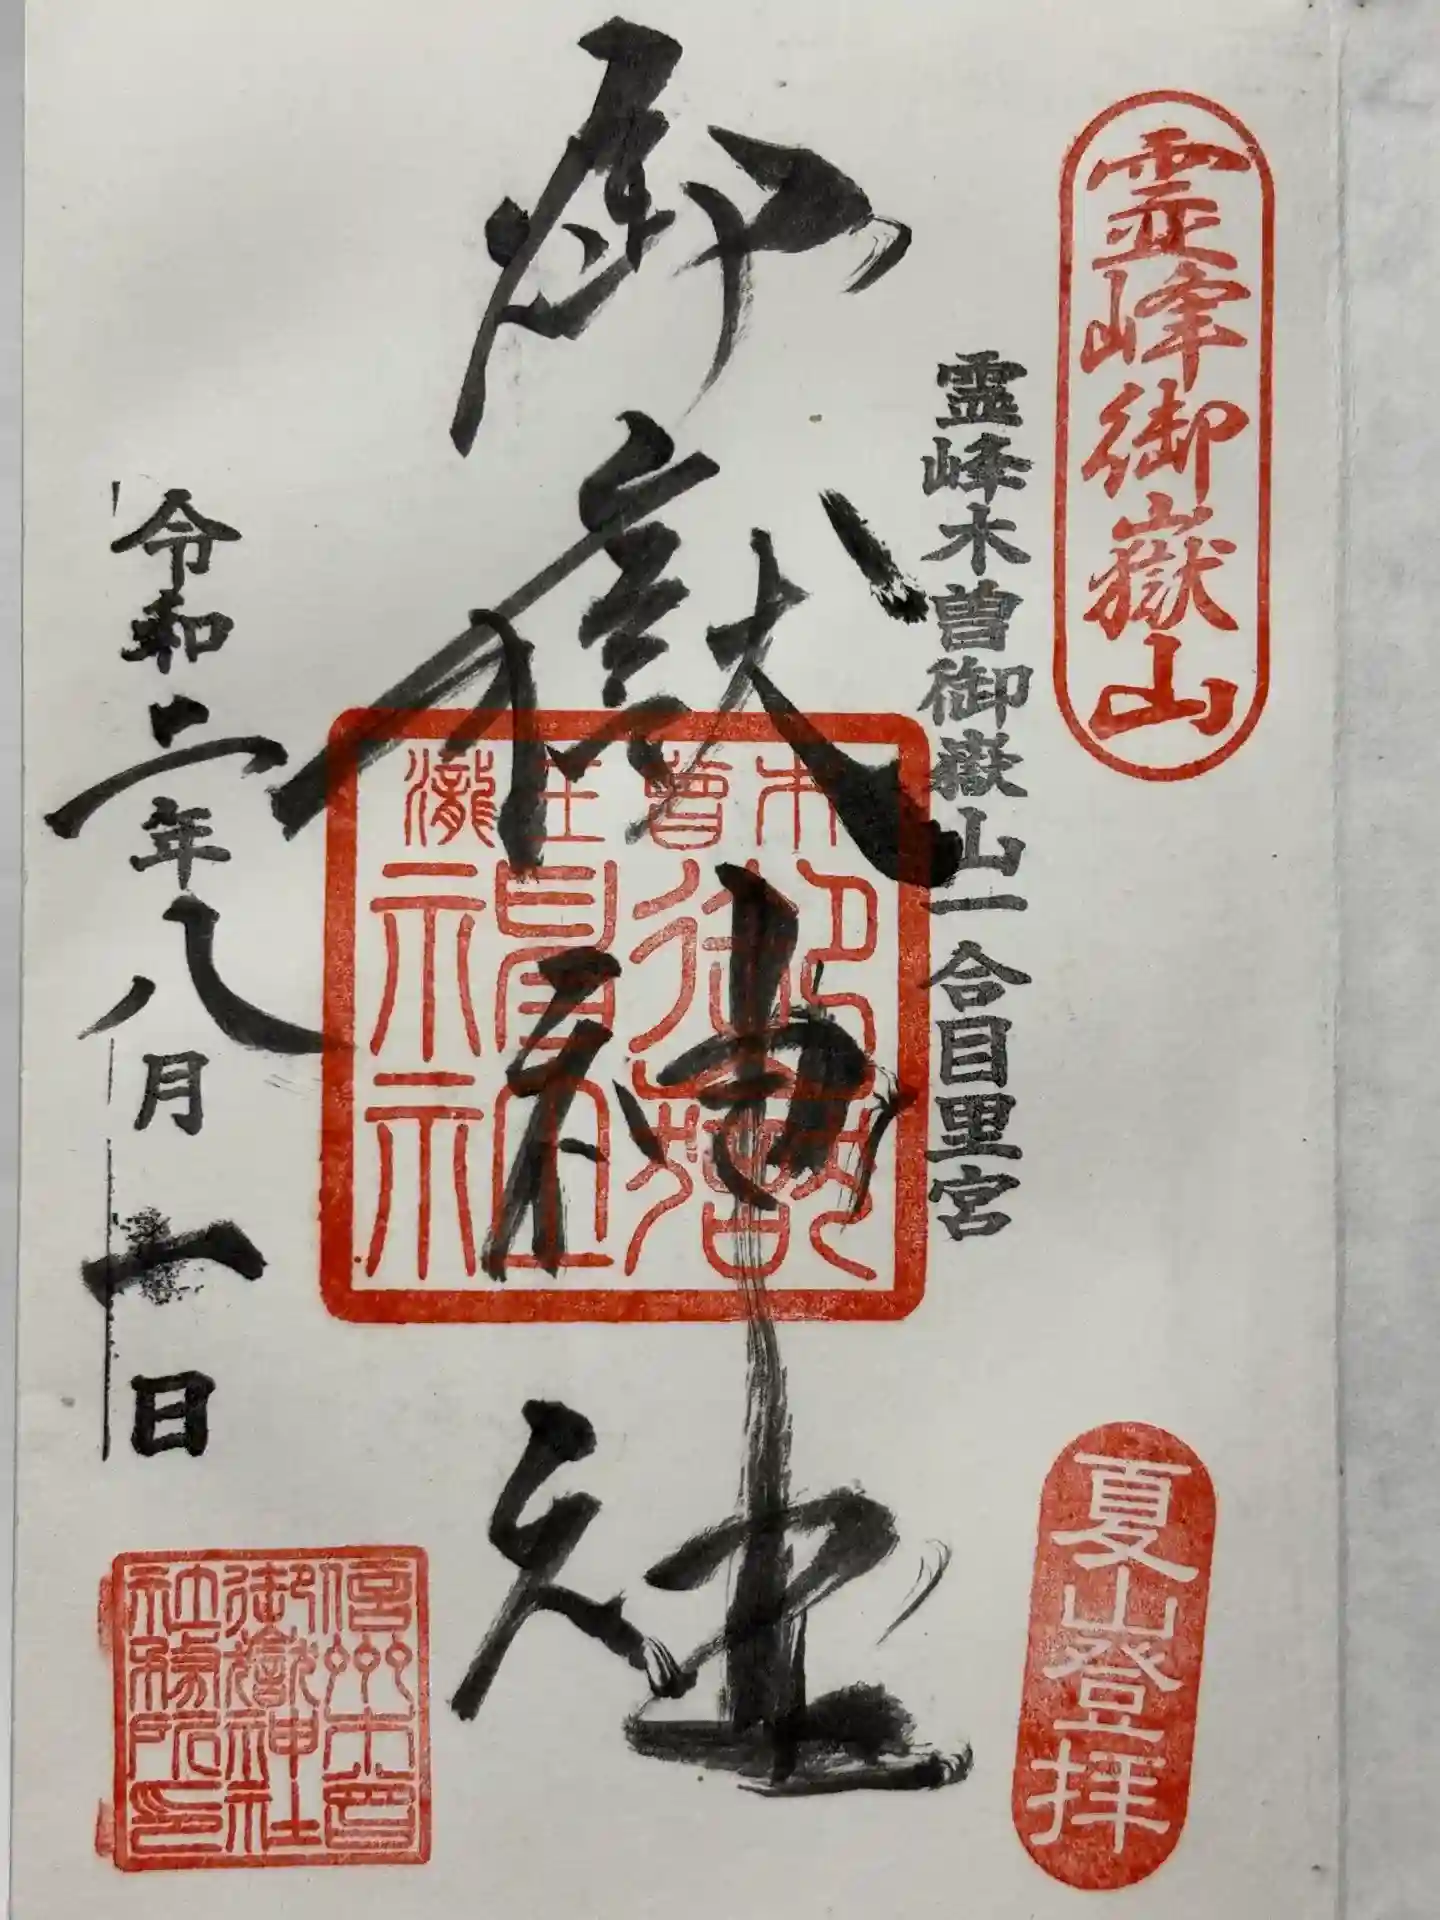 霊峰御嶽山
夏山登拝
霊峰木曽御嶽山一合目里宮
御嶽神社
木曽王瀧
令和二年八月一日
信州木曽
御嶽神社
社務所印